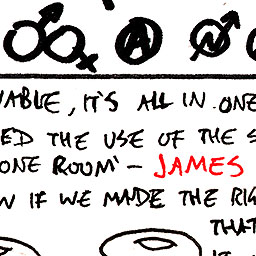 VABLE, IT'S ALL IN ONE
ED THE USE OF THE S
ONE ROOM' - JAMES
IF WE MADE THE RIG
THAT